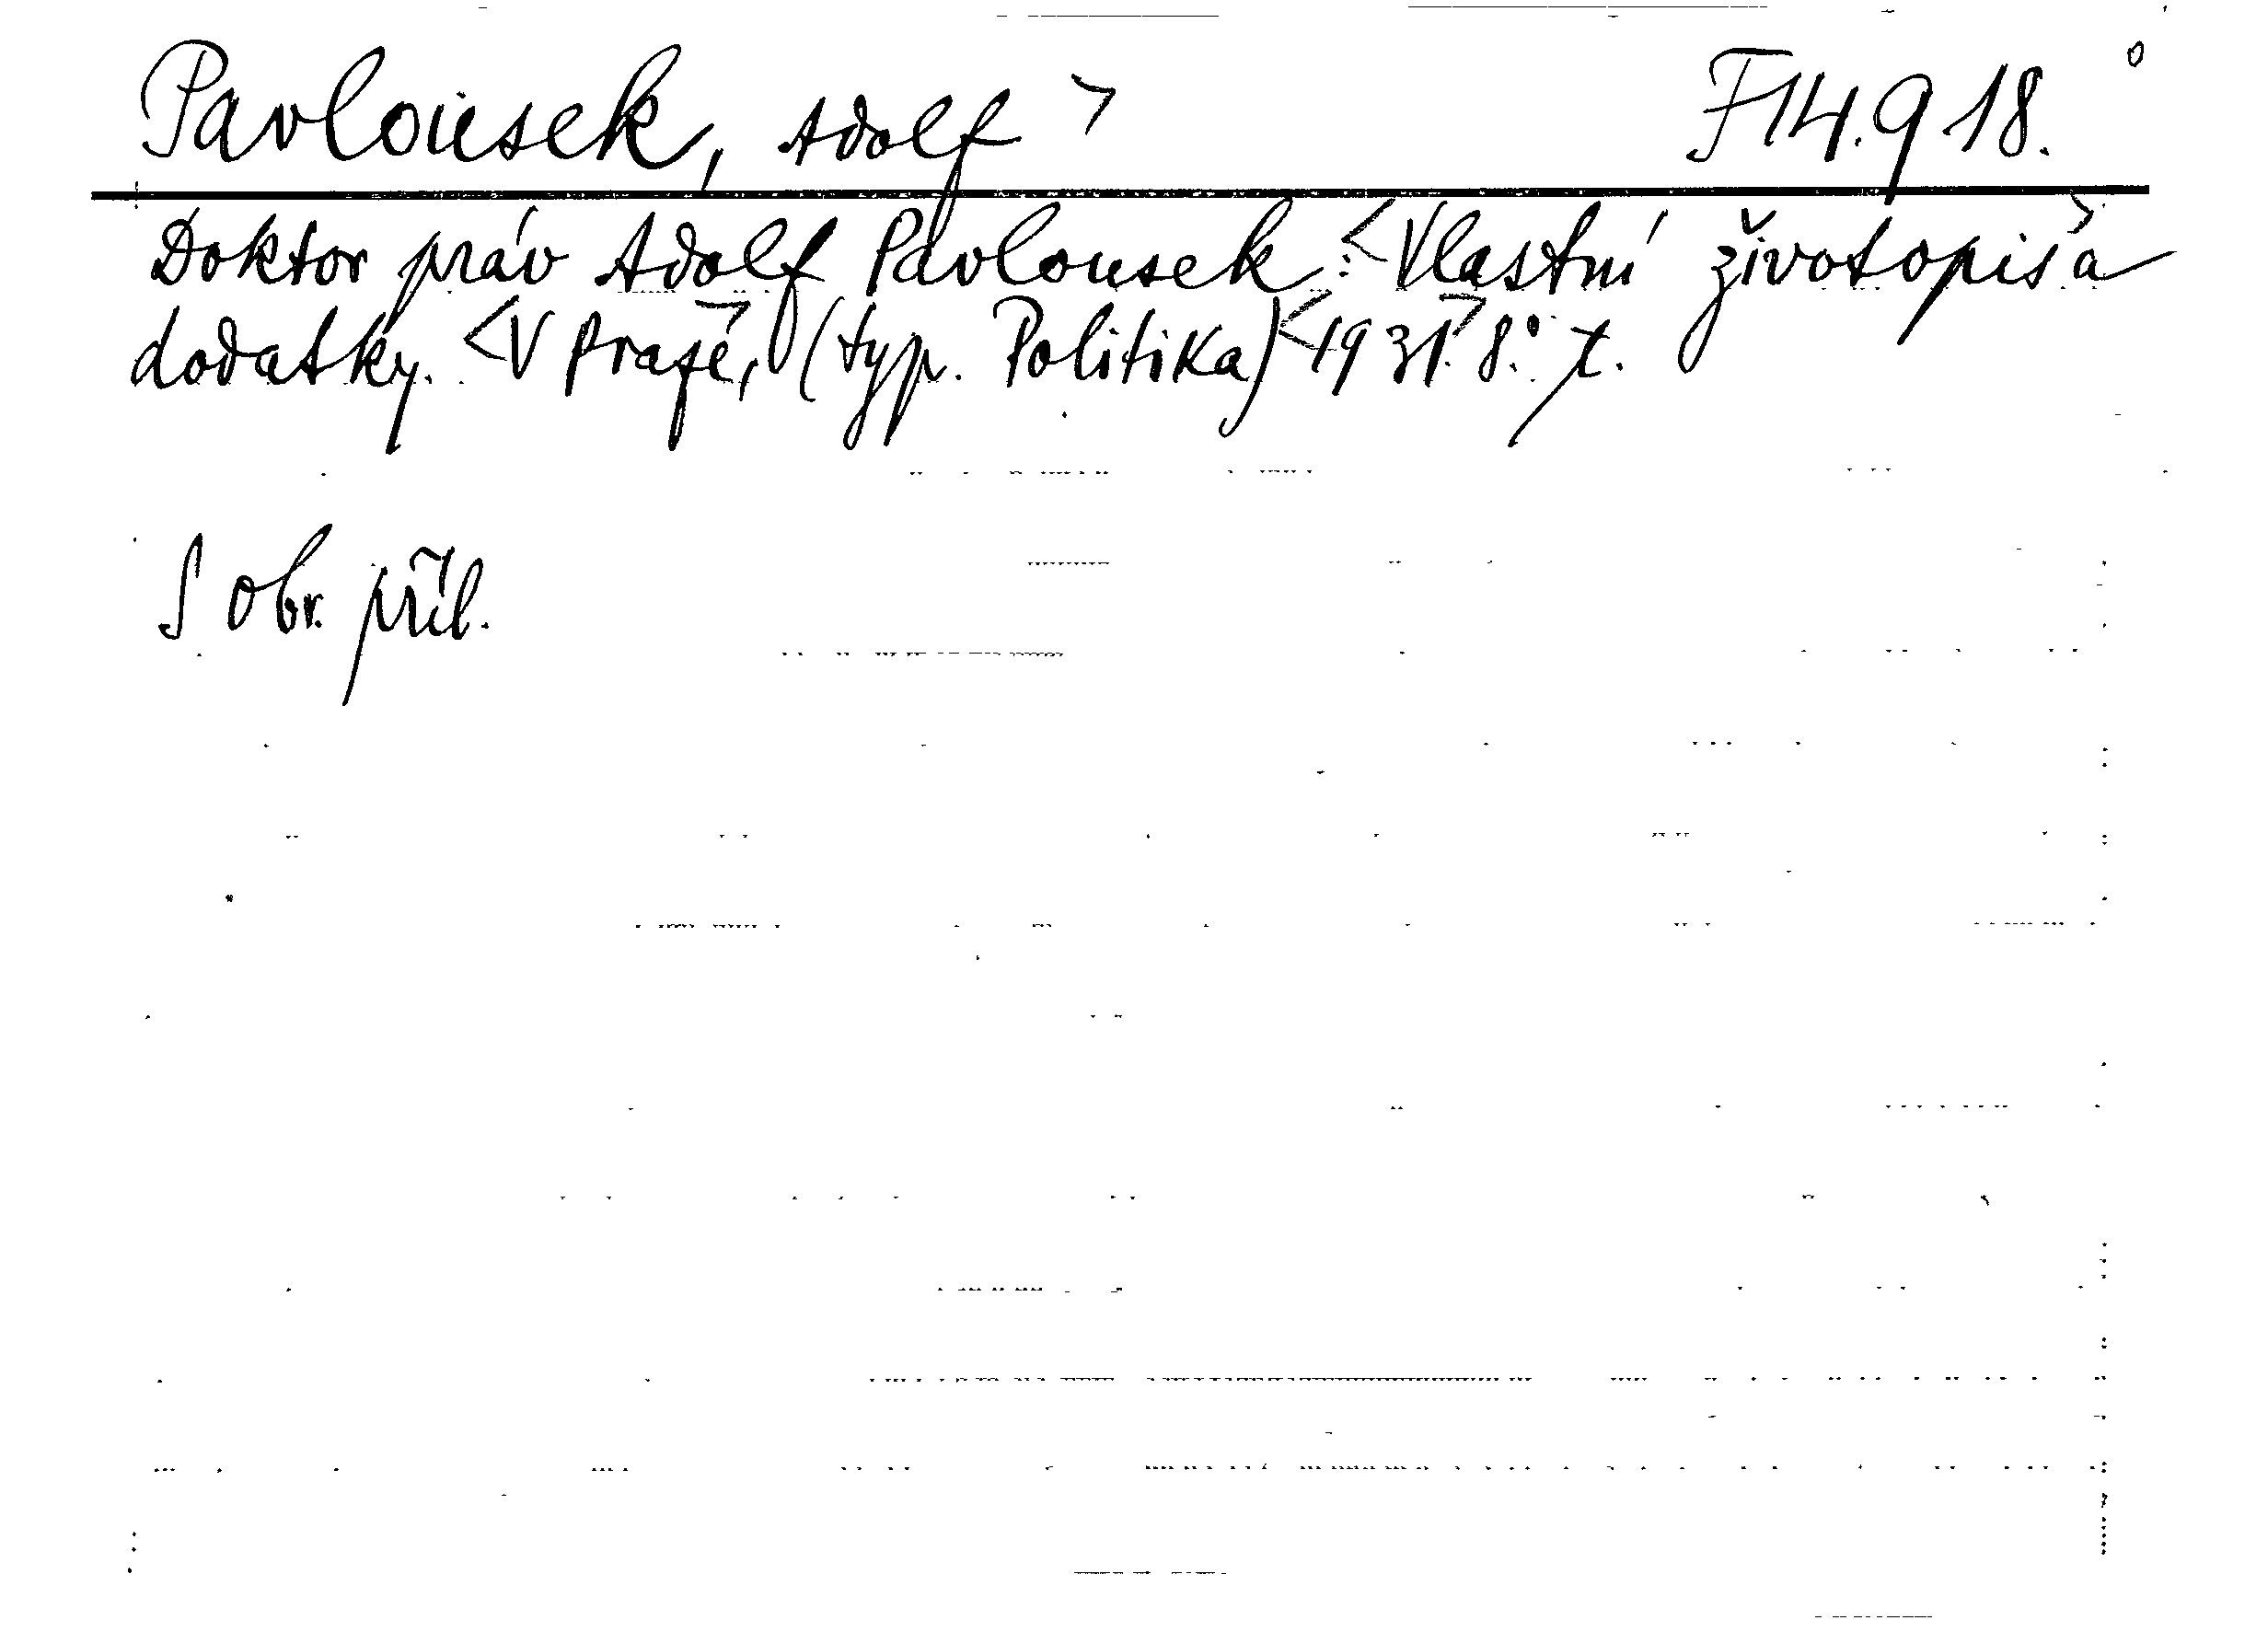 Pavloušek, Adolf > F 14.918.
Doktor práv Adolf Pavlousek: <Vlastní životopis> a
dodatky. <V Praze,> (typ. Politika) <1931.> 8.° t.
S obr. příl.